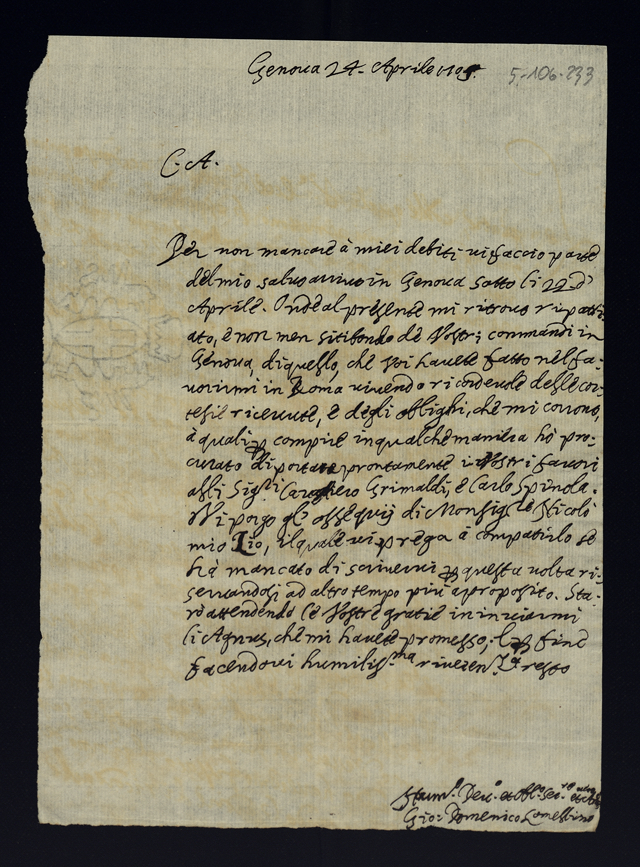 Genova 24. Aprile
5-106-233
C. A.
Per non mancare à miei debiti vi faccio parte
del mio salvo arrivo in Genova sotto li 22 d'
Aprile. Onde al presente mi ritrovo ripatri-
ato, è non men sitibondo de Vostri commandi in
Genova, di quello, che voi havete fatto nel fa-
vorirmi in Roma vivendo ricordevole delle cor-
tesie ricevute, è degli oblighi, che mi corrono,
à quali per compire in qualche maniera hò pro-
curato di portare prontamente i Vostri favori
alli Sig.ri Grimaldi, è Carlo Spinola.
Vi porgo gli ossequij di Monsig.re Nicolò
mio Zio, il quale vi prega à compatirlo se
hà mancato di scrivervi per questa volta ri-
servandosi ad altro tempo più à proposito. Sta-
rò attendendo le Vostre gratie in inviarmi
li Agnus, che mi havete promesso, è per fine
facendovi humiliss.ma riveren.za resto
Hum.o Dev.o et obl.o
Gio: Domenico Lomellino